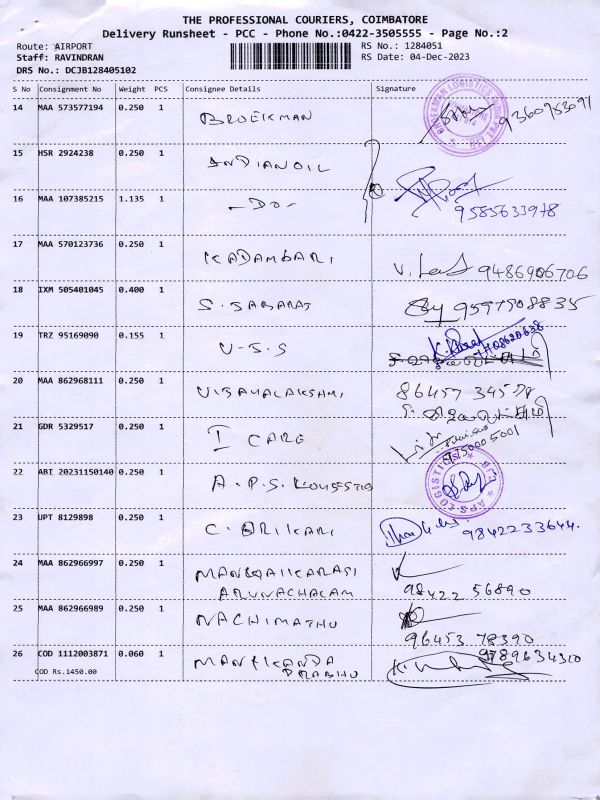 THE PROFESSIONAL COURIERS, COIMBATORE
Delivery Runsheet - PCC - Phone No.:0422-3505555 - Page No.:2
Route: AIRPORT RS No.: 1284051
Staff: RAVINDRAN RS Date: 04-Dec-2023
DRS No.: DCJB128405102
S No Consignment No Weight PCS Consignee Details Signature
14 MAA 573577194 0.250 1 BROEKMAN 9360953091
15 HSR 2924238 0.250 1 INDIANOIL
16 MAA 107385215 1.135 1 -DO- 9585633978
17 MAA 570123736 0.250 1 KADAMBARI 9486906706
18 IXM 505401045 0.400 1 S. SABARAJ 9597508835
19 TRZ 95169090 0.155 1 U-S-S
20 MAA 862968111 0.250 1 VIJAYALAKSHMI 86457 345
21 GDR 5329517 0.250 1 I CARE
22 ABI 20231150140 0.250 1 A.P.S. LOGISTICS
APS LOGISTICS
23 UPT 8129898 0.250 1 C. 9842233644.
24 MAA 862966997 0.250 1 MANGAIKARASI
ARUNACHALAM 98422 56890
25 MAA 862966989 0.250 1 NACHIMATHU
96453 78390
26 COD 1112003871 0.060 1 MANIKANDA 9789634310
COD Rs.1450.00 PRABHU